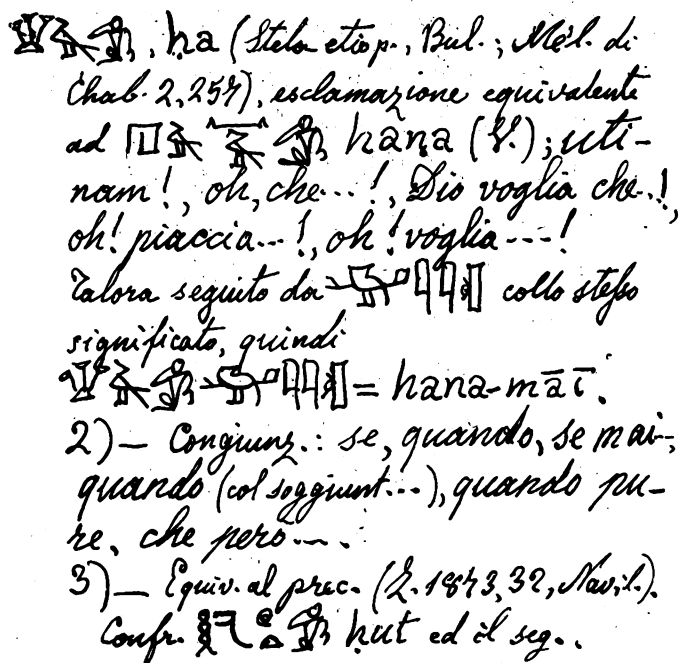 , ha (Stela etiop., Bul.; Mél. di
Chab. 2, 257), esclamazione equivalente
ad hāna (V.); uti-
nam!, oh, che...!, Dio voglia che..!,
oh! piaccia...!, oh! voglia...!
Talora seguito da collo stesso
significato, quindi
= hana-māī.
2) — Congiunz.: se, quando, se mai,
quando (col soggiunt...), quando pu-
re, che però...
3) — Equiv. al prec. (Z. 1873, 32, Navil.).
Confr. hut ed il seg..